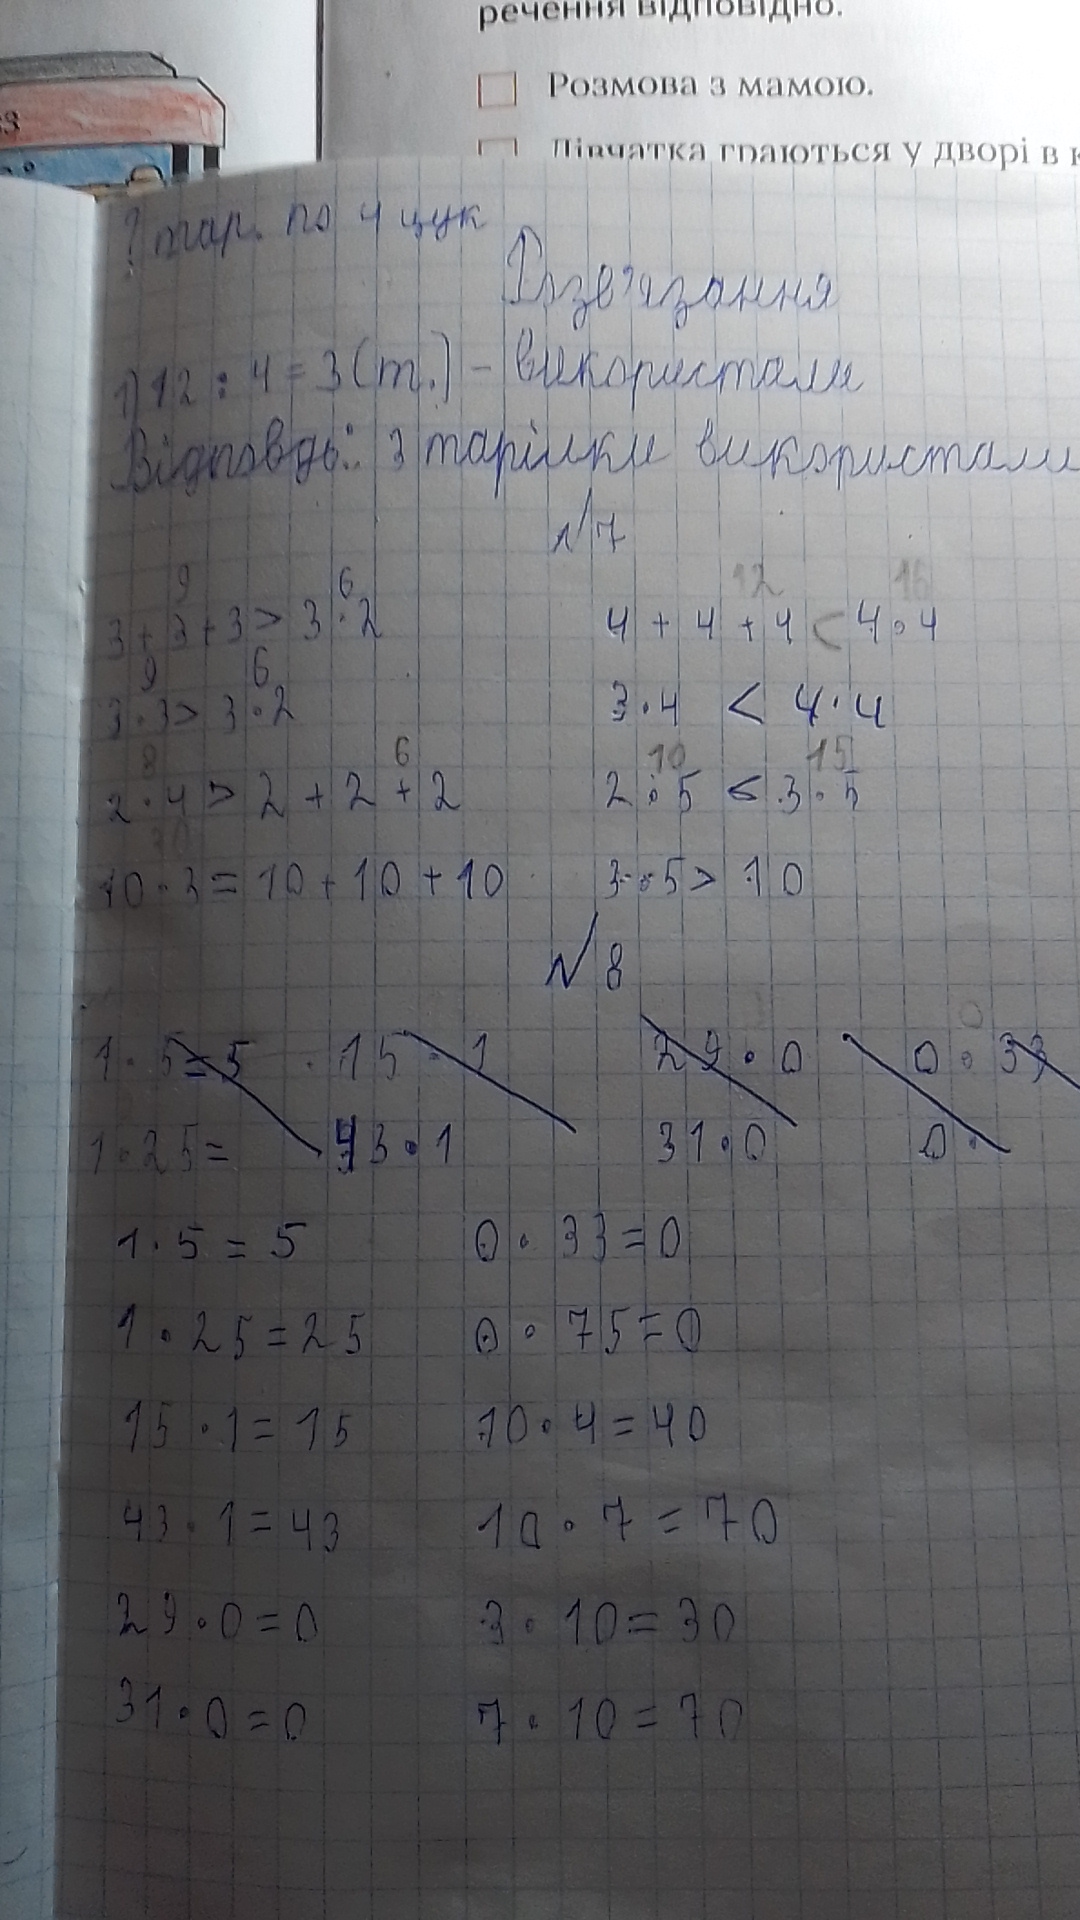 речення відповідно.
Розмова з мамою.
Дівчатка граються у дворі в к
? тар. по 4 цук
Розв'язання
1) 12 : 4 = 3 (т.) - використали
Відповдь: 3 тарілки використали
№7
9 6 12 16
3 + 3 + 3 > 3 · 2 4 + 4 + 4 < 4 · 4
9 6
3 · 3 > 3 · 2 3 · 4 < 4 · 4
8 6 10 15
2 · 4 > 2 + 2 + 2 2 · 5 < 3 · 5
30
10 · 3 = 10 + 10 + 10 3 · 5 > 10
№ 8
0
1 · 5 = 5 · 15 · 1 29 · 0 0 · 33
1 · 25 = 43 · 1 31 · 0 0 ·
1 · 5 = 5 0 · 33 = 0
1 · 25 = 25 0 · 75 = 0
15 · 1 = 15 10 · 4 = 40
43 · 1 = 43 10 · 7 = 70
29 · 0 = 0 3 · 10 = 30
31 · 0 = 0 7 · 10 = 70